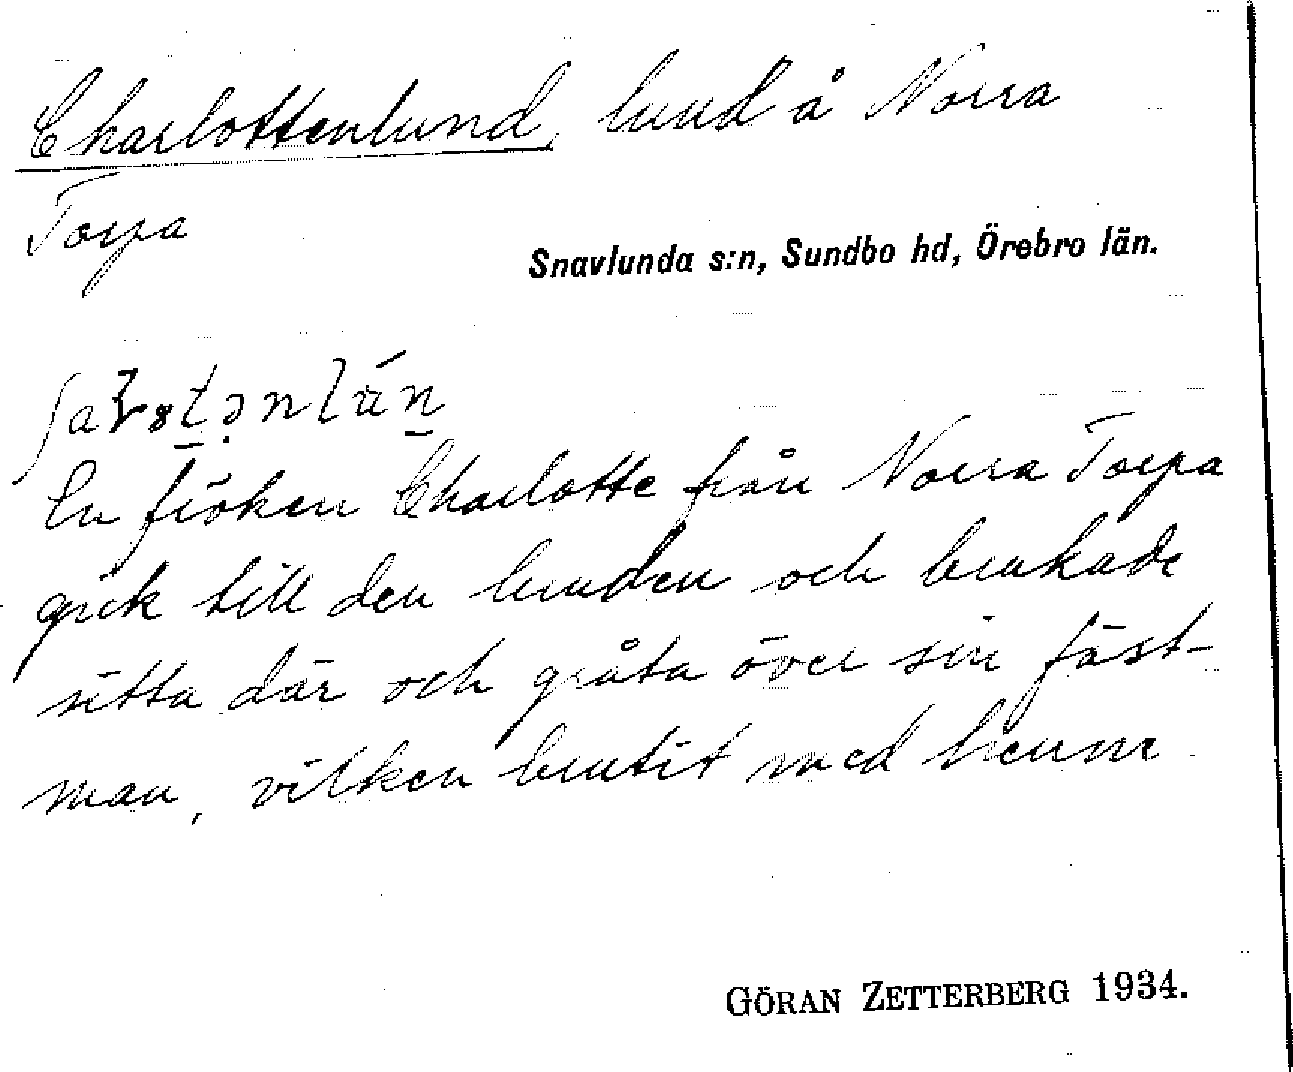 Charlottenlund, lund å Norra
Torpa
Snavlunda s:n, Sundbo hd, Örebro län.
En fröken Charlotte från Norra Torpa
gick till den lunden och brukade
sitta där och gråta över sin fäst-
man, vilken brutit med henne
GÖRAN ZETTERBERG 1934.